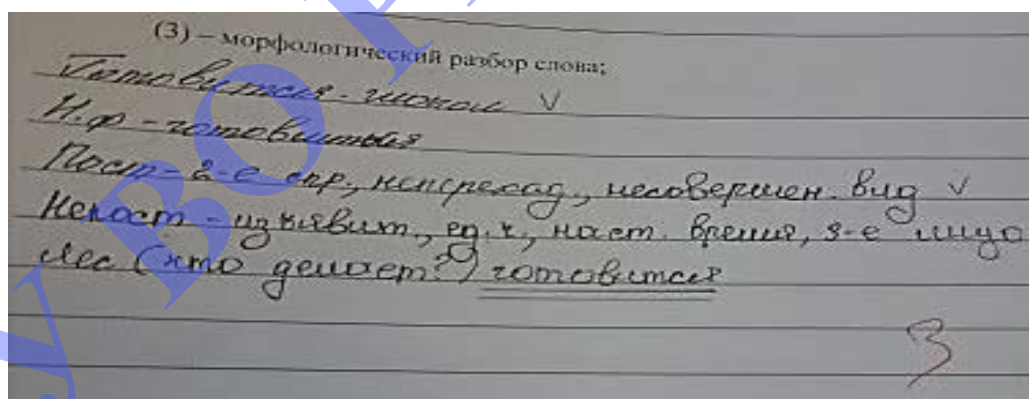 (3) – морфологический разбор слова;
Готовится - глагол V
Н.ф - готовиться
Пост - 2-е спр., неперехад., несовершен. вид V
Непост - изъявит., ед.ч., наст. время, 3-е лицо
Лес (что делает?) готовится
3